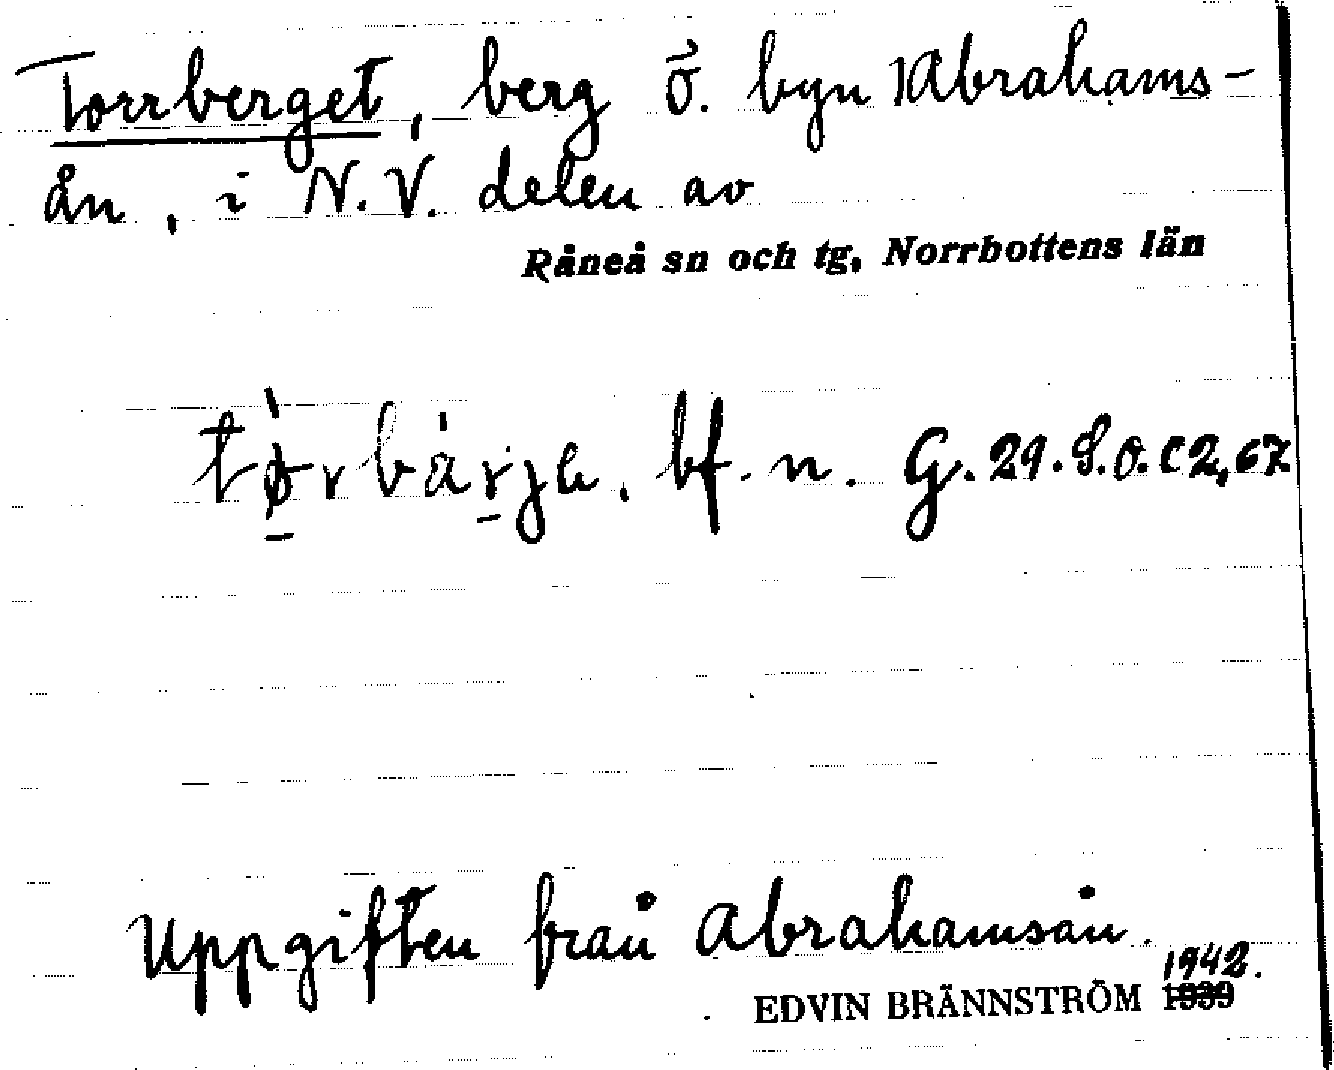 Torrberget, berg ö. byn Abrahams-
ån, i N.V. delen av
Råneå sn och tg, Norrbottens län
tø̱̀rbáṟje. bf. n. G. 29. S.O. C2,67
Uppgiften från Abrahamsån.
1942.
EDVIN BRÄNNSTRÖM 1939